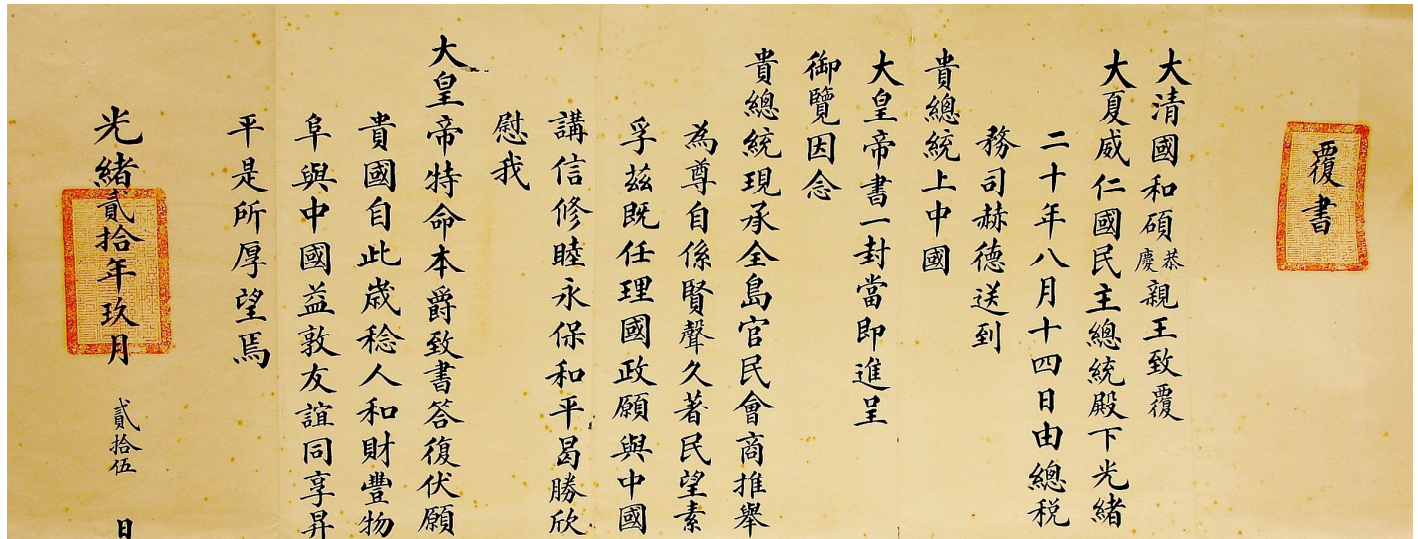 覆書
大清國和碩恭慶親王致覆
大夏威仁國民主總統殿下光緒
二十年八月十四日由總税
務司赫德送到
貴總統上中國
大皇帝書一封當即進呈
御覽因念
貴總統現承全島官民會商推舉
為尊自係賢聲久著民望素
孚茲既任理國政願與中國
講信修睦永保和平曷勝欣
慰我
大皇帝特命本爵致書答復伏願
貴國自此歲稔人和財豐物
阜與中國益敦友誼同享昇
平是所厚望焉
光緒貳拾年玖月貳拾伍日